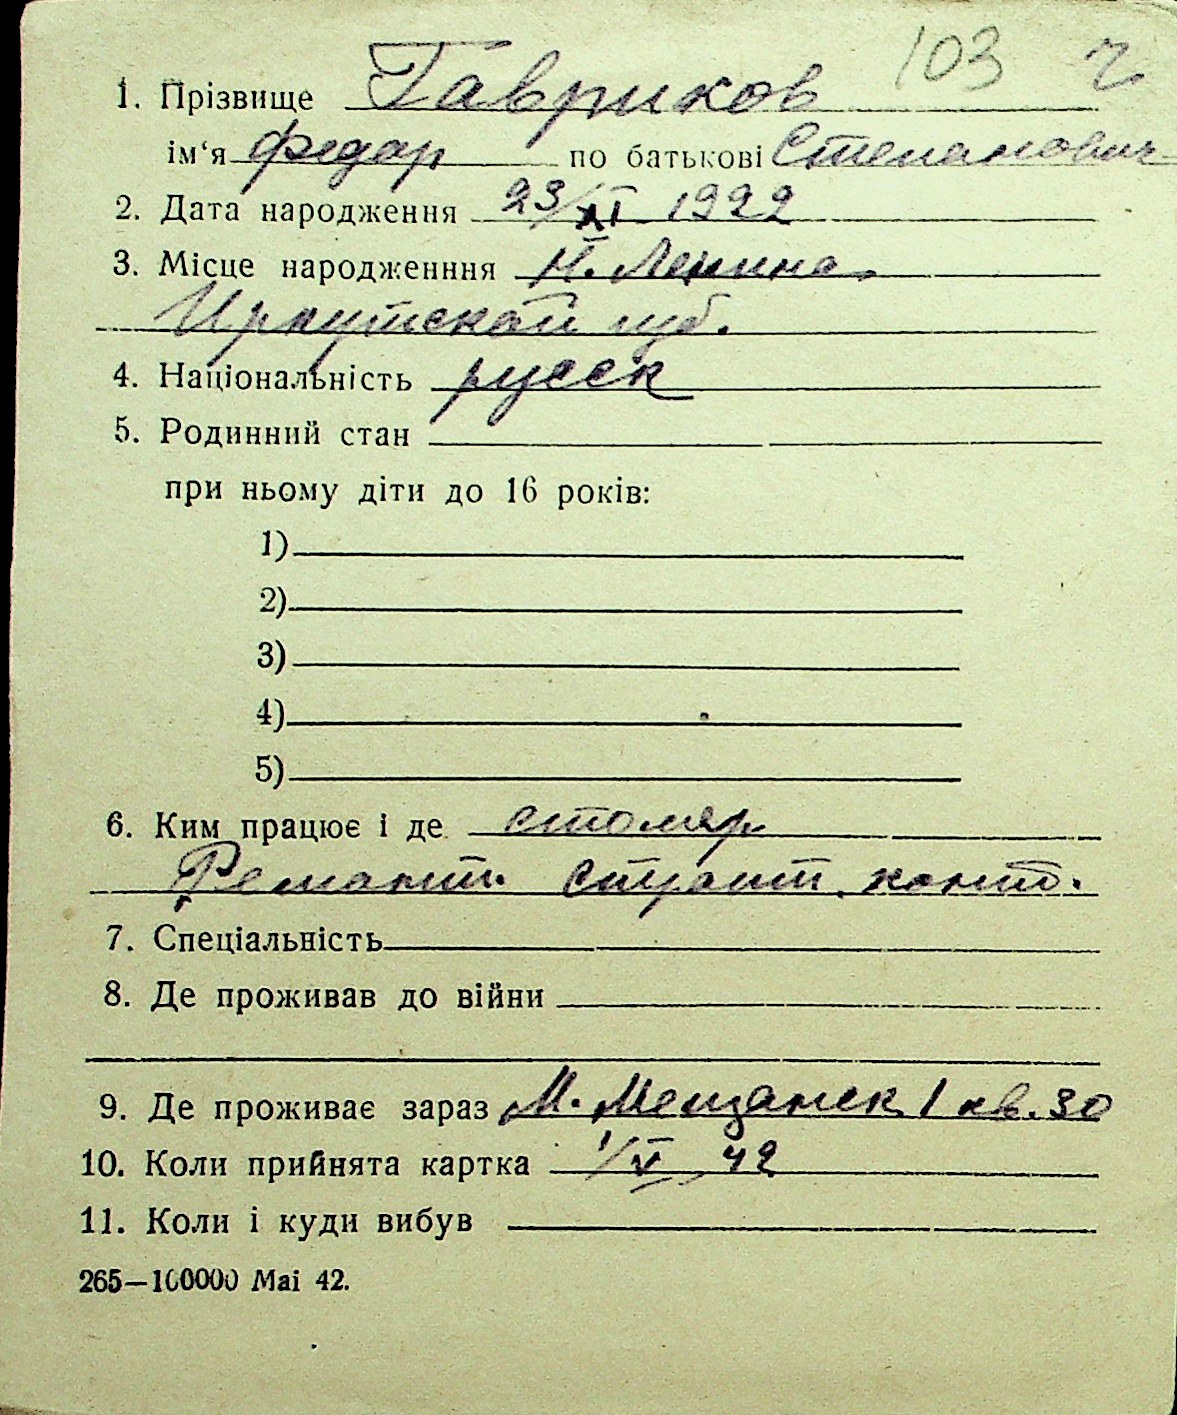 103 ч
1. Прізвище Гавриков
ім'я Федар по батькові Степанович
2. Дата народження 23/XI 1922
3. Місце народженння Н. Ленино
Иркутской губ.
4. Національність русск
5. Родинний стан
при ньому діти до 16 років:
1)
2)
3)
4)
5)
6. Ким працює і де столяр
Ремонт. Строит. конт.
7. Спеціальність
8. Де проживав до війни
9. Де проживає зараз М. Мещанск 1 кв. 30
10. Коли прийнята картка 1/V 42
11. Коли і куди вибув
265—100000 Маі 42.